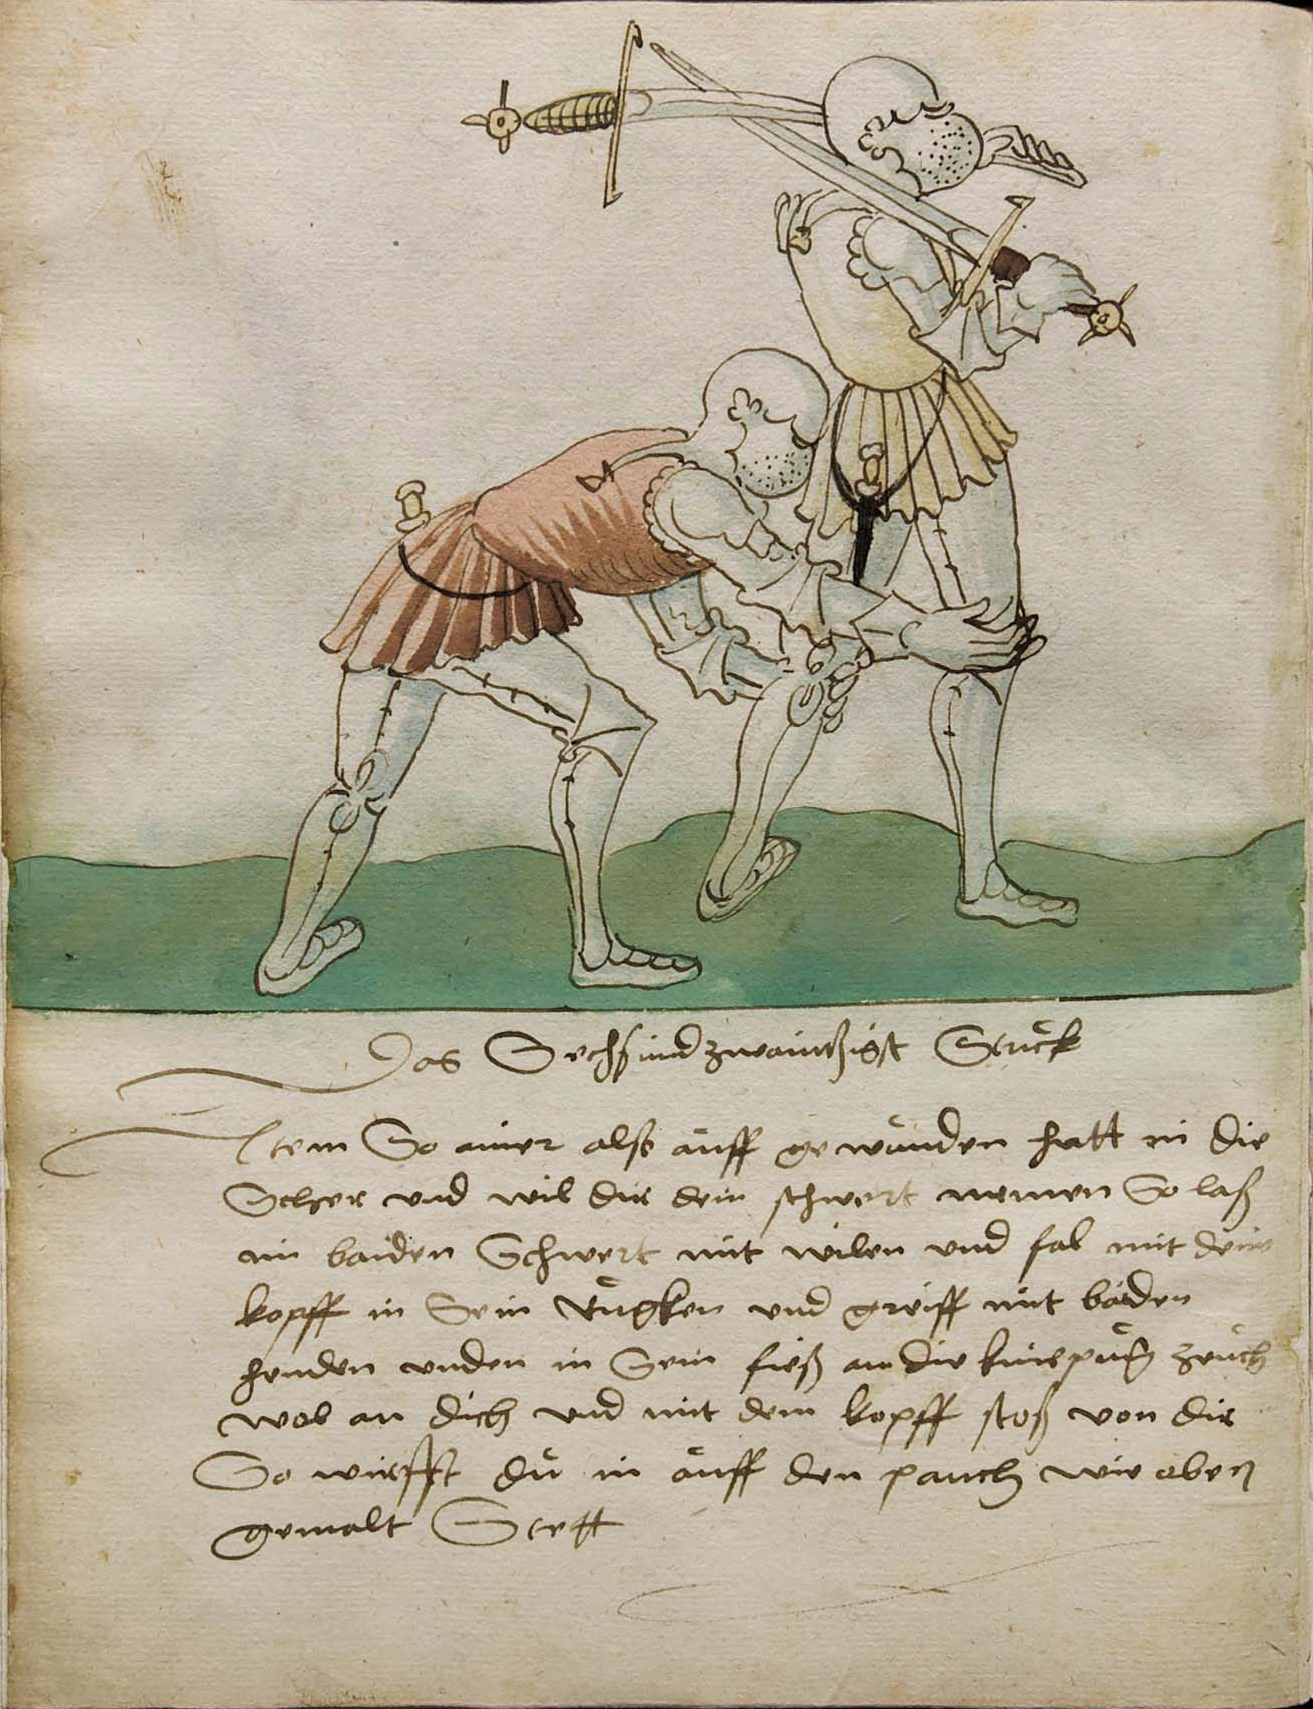 Das Sechsundzwaintzigist Stuck
Item So ainer also auff gewunden hatt in die
Scher und wil dir dein schwert nemen So laß
im baiden Schwert mit wilen und fal mit dein
kopff in Sein Rugken und greiff mit baiden
henden unden in Sein fieß an die kniepug zeuch
wol an dich und mit dem kopff stoß von dir
So wirffst du in auff den pauch wie oben
gemalt Stett